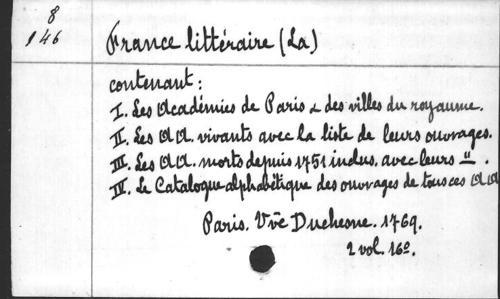 8
146
France littéraire (La)
contenant :
I. Les Académies de Paris & des villes du royaume.
II. Les AA. vivants avec la liste de leurs ouvrages.
III. Les AA. morts depuis 1751 inclus. avec leurs " .
IV. Le Catalogue alphabétique des ouvrages de tous ces AA
Paris. Vve Duchesne. 1769.
2 vol. 16º.